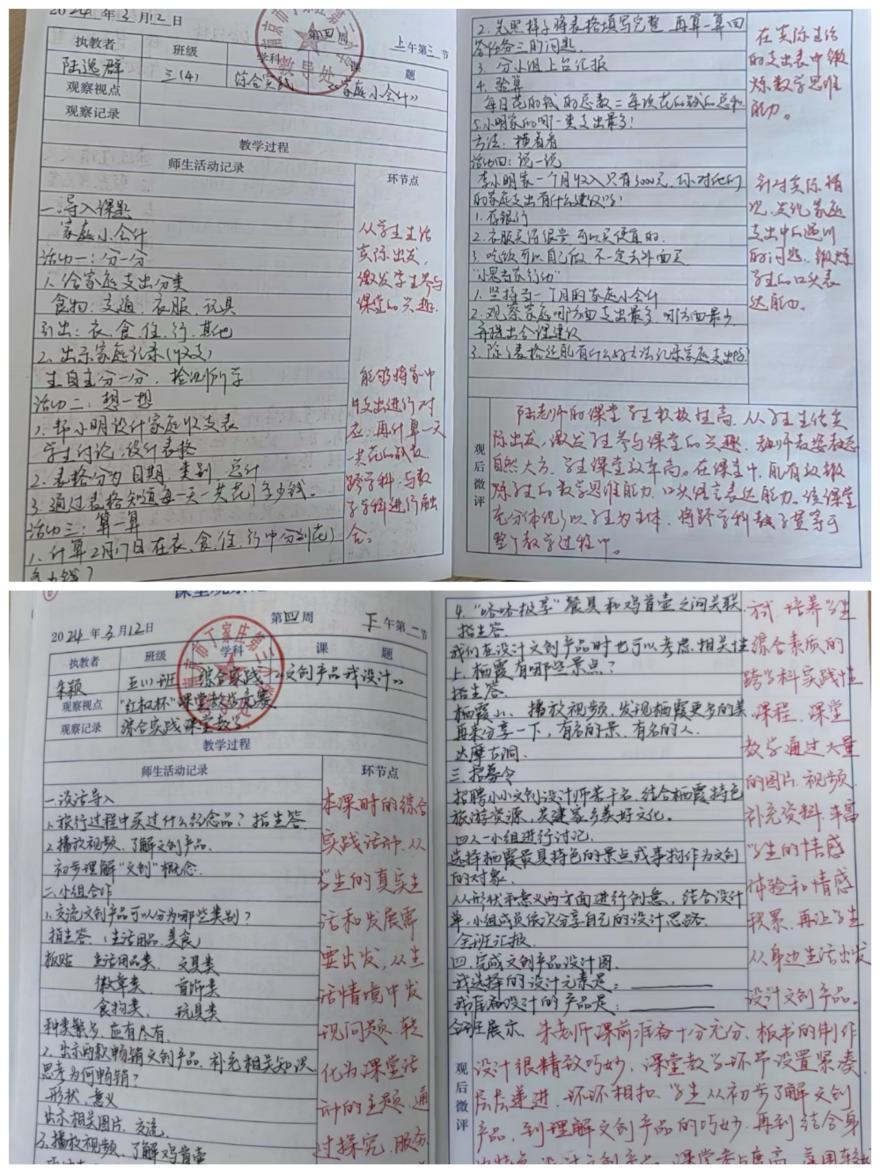 2024年3月12日 第四周 上午第三节
执教者 班级 学科 课题
陆逸群 三(4) 综合实践 《家庭小会计》
观察视点
观察记录
教学过程
师生活动记录 环节点
一、导入课题
家庭小会计
活动一：分一分
1.给家庭支出分类
食物、交通、衣服、玩具
引出：衣、食、住、行、其他
2.出示家庭记录(收支)
生自主分一分，检测所学
活动二：想一想
1.帮小明设计家庭收支表
学生讨论，设计表格
2.表格分为日期、类别、总计
3.通过表格知道每一天一共花了多少钱。
活动三：算一算
1.计算2月17日在衣、食、住、行中分别花了
多少钱？
从学生生活
实际出发，
激发学生参与
课堂的兴趣。
能够将家中
收出进行对
应，再计算一天
一共花的钱数，
跨学科，与数
学学科进行融
合。
2.先照样子将表格填写完整，再算一算回
答任务三的问题。
3.分小组上台汇报
4.验算
每日花的钱的总数=每次花的钱的总和
5.小明家的哪一类支出最多？
方法：横着看
活动四：说一说
李小明家一个月收入只有5000元，你对他们
的家庭支出有什么建议吗？
1.存银行
2.衣服买得很贵，可以买便宜的。
3.吃饭可以自己做，不一定去外面买
"小鬼当家行动"
1.坚持当一个月的家庭小会计
2.观察家庭哪方面支出最多，哪方面最少，
并提出合理建议
3.除了表格还能有什么好方法记录家庭支出吗？
在实际生活
的支出表中锻
炼数学思维
能力。
针对实际情
况，发现家庭
支出中的遇到
的问题，锻炼
学生的口头表
达能力。
观后微评
陆老师的课堂学生积极性高，从学生生活实
际出发，激发学生参与课堂的兴趣，教师教姿教态
自然大方，学生课堂效率高。在课堂中，能有效锻
炼学生的数学思维能力、口头语言表达能力，使课堂
充分体现了以学生为主体，将跨学科教学贯穿于
整个教学过程中。
2024年3月12日 第四周 下午第二节
执教者 班级 学科 课题
朱颖 五(1)班 综合实践 《文创产品我设计》
观察视点 "红枫杯"课堂教学竞赛
观察记录 综合实践课堂教学
教学过程
师生活动记录 环节点
一、谈话导入
1.旅行过程中买过什么纪念品？指生答
2.播放视频，了解文创产品。
初步理解"文创"概念
二、小组合作
1.交流文创产品可以分为哪些类别？
指生答：生活用品、美食
板贴 生活用品类 文具类
徽章类 首饰类
食物类 玩具类
种类繁多，应有尽有
2.出示两款畅销文创产品，补充相关知识
思考为何畅销？
形状、意义
出示相关图片，交流。
3.播放视频，了解鸡首壶
本课时的综合
实践活动，从
学生的真实生
活和发展需
要出发，从生
活情境中发
现问题，转
化为课堂活
动的主题，通
过探究、服务
4."咯咯极享"餐具和鸡首壶之间关联
指生答
我们在设计文创产品时也可以考虑相关性
上，栖霞有哪些景点？
指生答
栖霞山、播放视频，发现栖霞更多的美
再来分享一下，有名的景、有名的人。
达摩古洞
三、招募令
招聘小小文创设计师若干名，结合栖霞特色
旅游资源，共建家乡美好文化。
四人一小组进行讨论，
选择栖霞最具特色的景点或事物作为文创
的对象。
从形状和意义两方面进行创意，结合设计
单，小组成员依次分享自己的设计思路
全班汇报
四、完成文创产品设计图
我选择的设计元素是：
我准备设计的产品是：
全班展示
方式，培养学生
综合素质的
跨学科实践性
课程。课堂
教学通过大量
的图片、视频
补充资料，丰富
学生的情感
体验和情感
积累，再让学生
从身边生活出发
设计文创产品。
观后微评
朱老师课前准备十分充分，板书的制作
设计很精致巧妙，课堂教学环节设置紧凑
层层递进，环环相扣，学生从初步了解文创
产品，到理解文创产品的巧妙，再到结合身